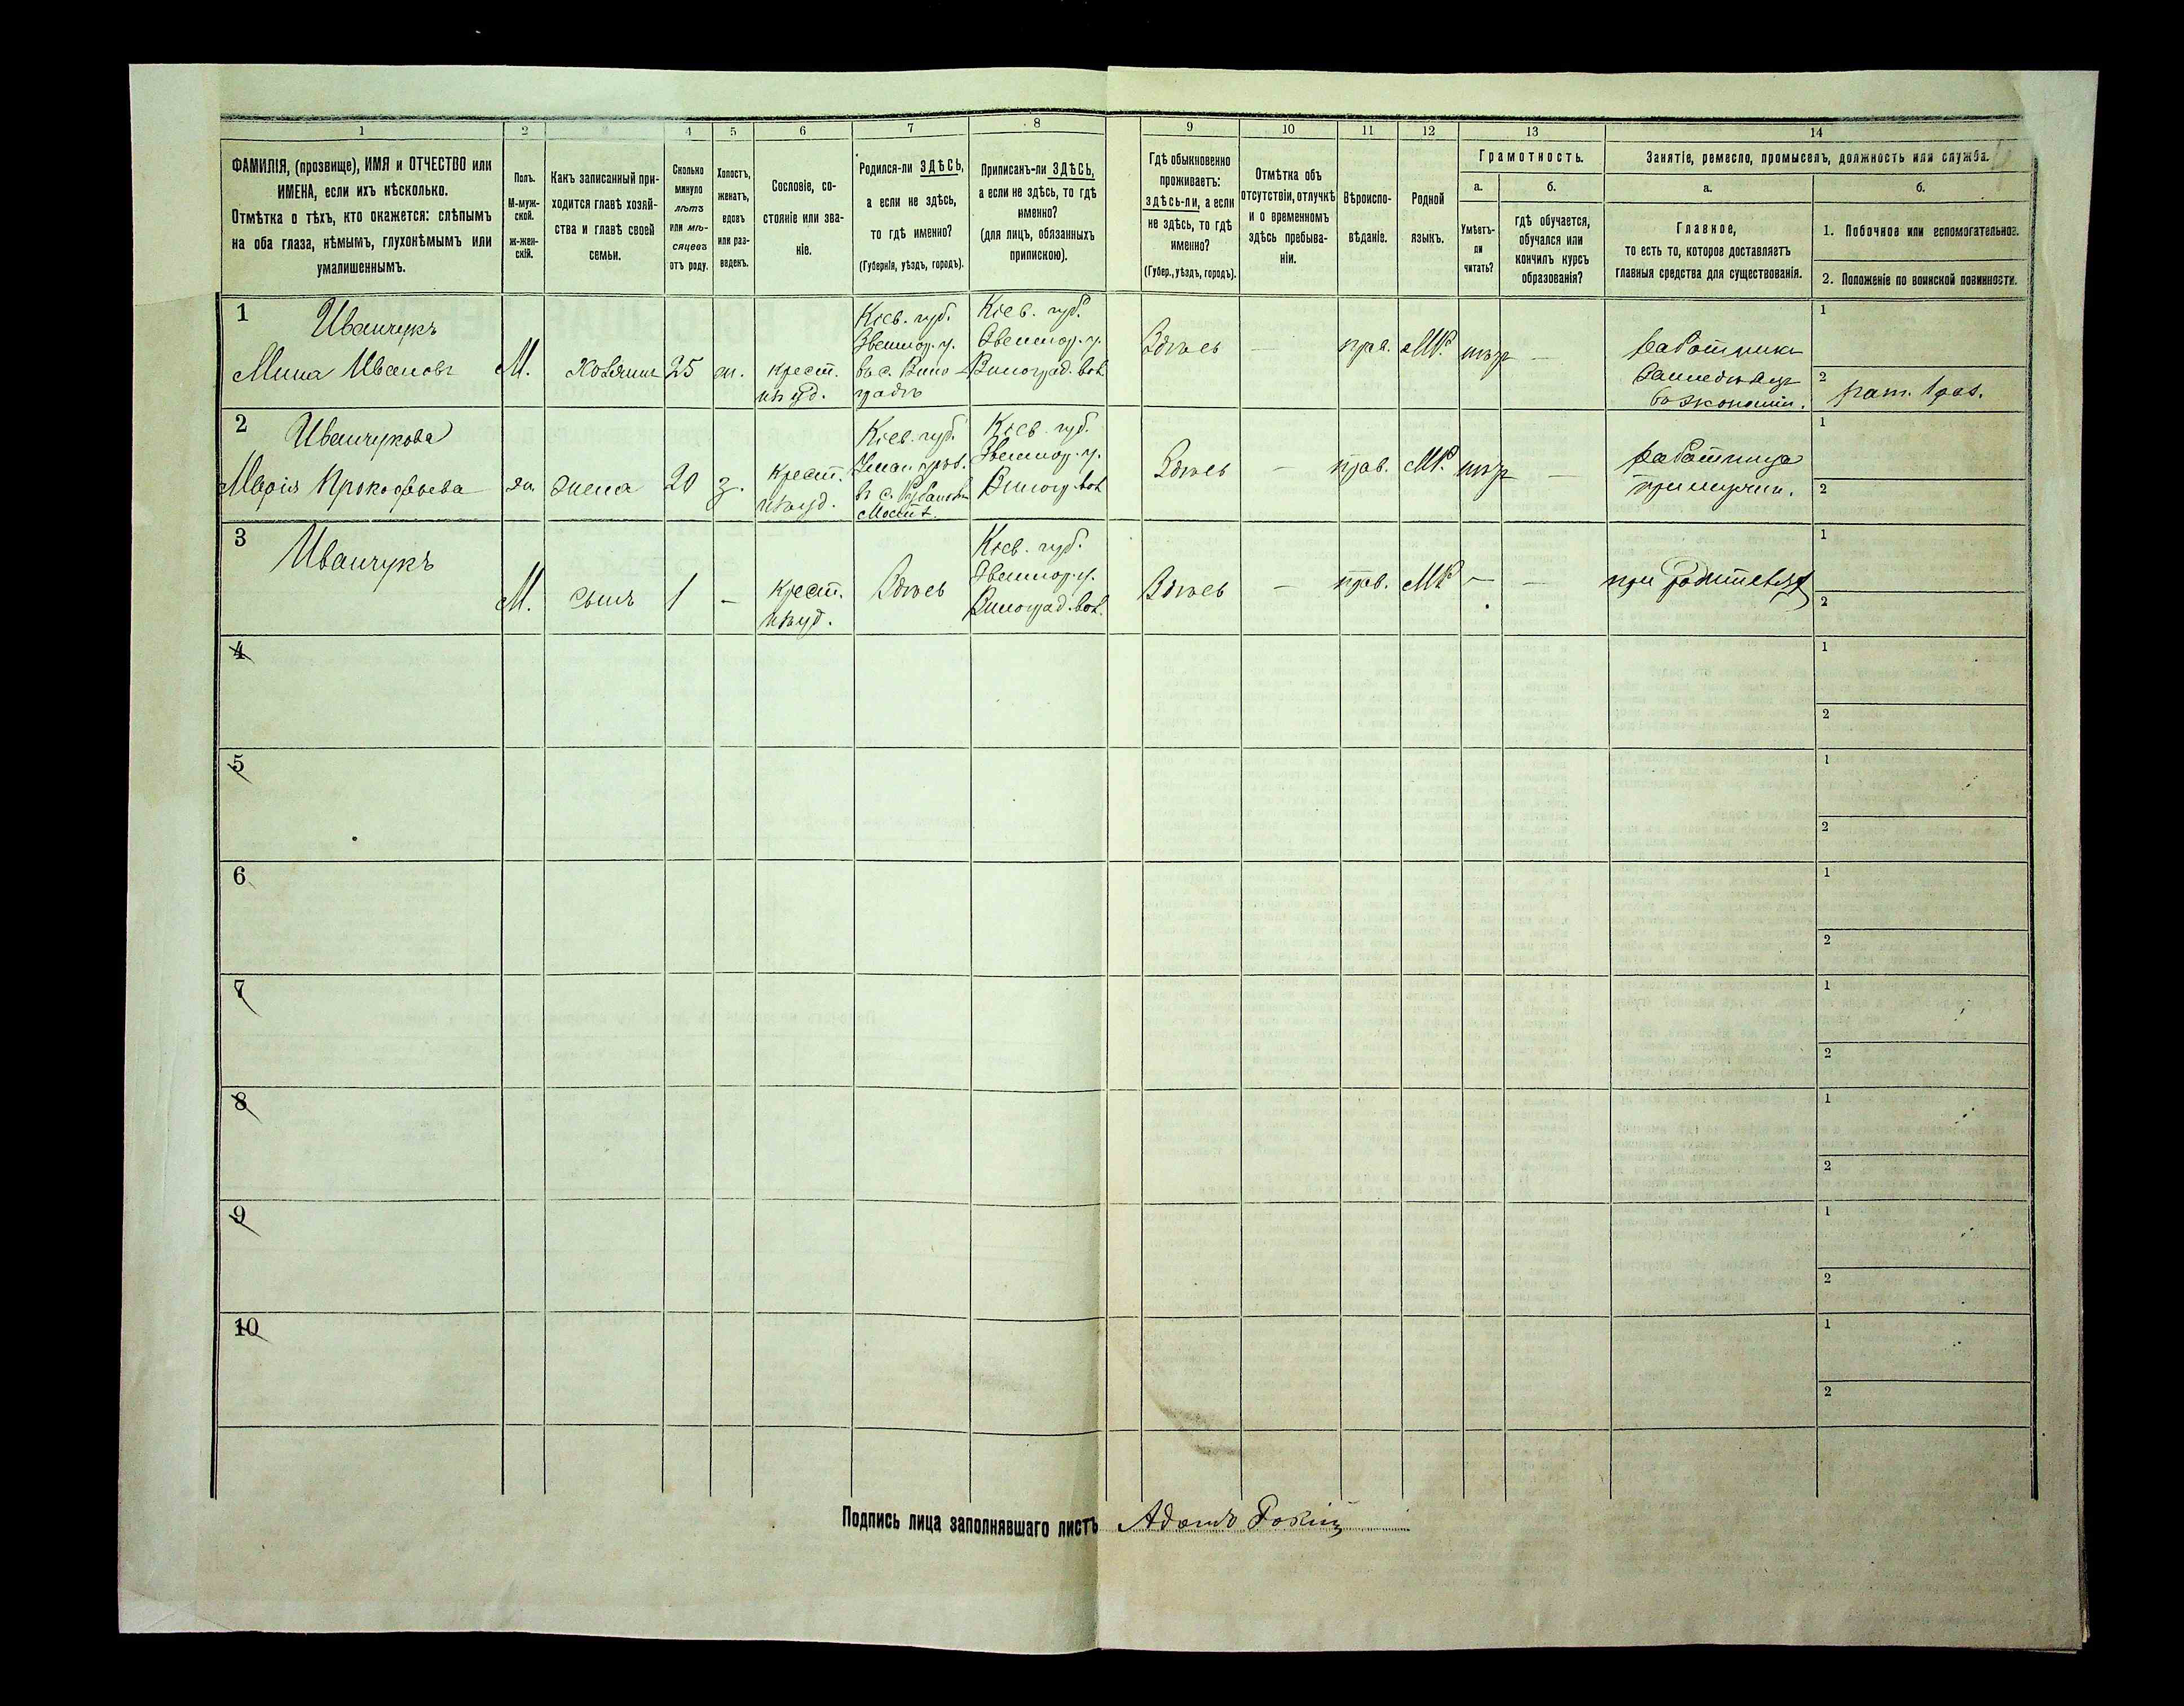 1 2 3 4 5 6 7 8 9 10 11 12 13 14
ФАМИЛІЯ, (прозвище), ИМЯ и ОТЧЕСТВО или
ИМЕНА, если ихъ нѣсколько.
Отмѣтка о тѣхъ, кто окажется: слѣпымъ
на оба глаза, нѣмымъ, глухонѣмымъ или
умалишеннымъ.
Полъ.
М-муж-
ской.
ж-жен-
скій.
Какъ записанный при-
ходится главѣ хозяй-
ства и главѣ своей
семьи.
Сколько
минуло
лѣтъ
или мѣ-
сяцевъ
отъ роду.
Холостъ,
женатъ,
вдовъ
или раз-
веденъ.
Сословіе, со-
стояніе или зва-
ніе.
Родился-ли ЗДѢСЬ,
а если не здѣсь,
то гдѣ именно?
(Губернія, уѣздъ, городъ).
Приписанъ-ли ЗДѢСЬ,
а если не здѣсь, то гдѣ
именно?
(для лицъ, обязанныхъ
припискою).
Гдѣ обыкновенно
проживаетъ:
здѣсь-ли, а если
не здѣсь, то гдѣ
именно?
(Губер., уѣздъ, городъ).
Отмѣтка объ
отсутствіи, отлучкѣ
и о временномъ
здѣсь пребыва-
ніи.
Вѣроиспо-
вѣданіе.
Родной
языкъ.
Грамотность.
а.
Умѣетъ-
ли
читать?
б.
гдѣ обучается,
обучался или
кончилъ курсъ
образованія?
Занятіе, ремесло, промыселъ, должность или служба.
а.
Главное,
то есть то, которое доставляетъ
главныя средства для существованія.
б.
1. Побочное или вспомогательное.
2. Положеніе по воинской повинности.
1
Иванчукъ
Мина Ивановъ
М.
хозяинъ
25
ж.
крест.
Кіев. губ.
Звенигор. у.
въ с. Вино-
градѣ
Кіев. губ.
Звенигор. у.
Виноград. вол.
Здѣсь
—
прав.
МР
—
работникъ
въ экономіи.
1
2 рат. 1 раз.
2
Иванчукова
Марія Прокофьева
ж.
жена
20
з.
крест.
Кіев. губ.
въ с.
Кіев. губ.
Звенигор. у.
Виногр. вол.
Здѣсь
—
прав.
МР
—
работница
1
2
3
Иванчукъ
М.
сынъ
1
—
крест.
Здѣсь
Кіев. губ.
Звенигор. у.
Виноград. вол.
Здѣсь
—
прав.
МР
—
—
при родителяхъ
1
2
4
1
2
5
1
2
6
1
2
7
1
2
8
1
2
9
1
2
10
1
2
Подпись лица заполнявшаго листъ Адамъ